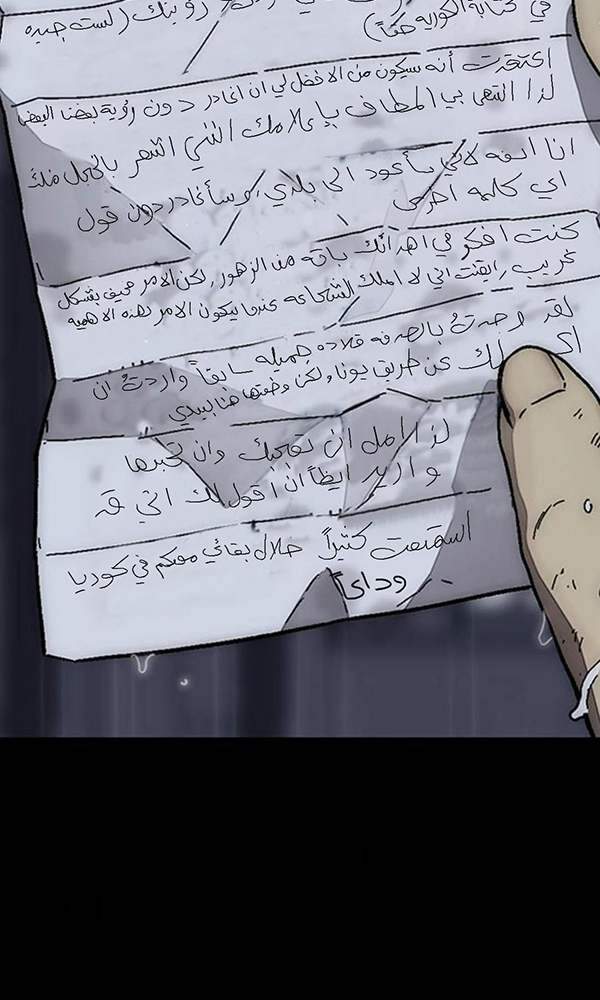 رؤيتك (لست جيده
في كتابة الكوريه حقاً)
اعتقدت أنه سيكون من الافضل لي ان اغادر دون رؤية بعضنا البعض
لذا انتهى بي المطاف بإعلامك انني اشعر بالخجل منك
انا اسفه لاني سأعود الى بلدي, وسأغادر دون قول
اي كلمه اخرى
كنت افكر في اهدائك باقه من الزهور, لكن الامر مخيف بشكل
غريب, ايقنت اني لا املك الشجاعه عندما يكون الامر بهذه الاهميه
لقد وجدتُ بالصدفه قلاده جميله سابقاً واردتُ ان
لك عن طريق يونا, ولكن وضعتها هنا بيدي
لذا امل ان تعجبك وان
واريد ايظاً ان اقول لك اني قد
استمتعت كثيراً خلال بقائي معكم في كوريا
وداعاً..